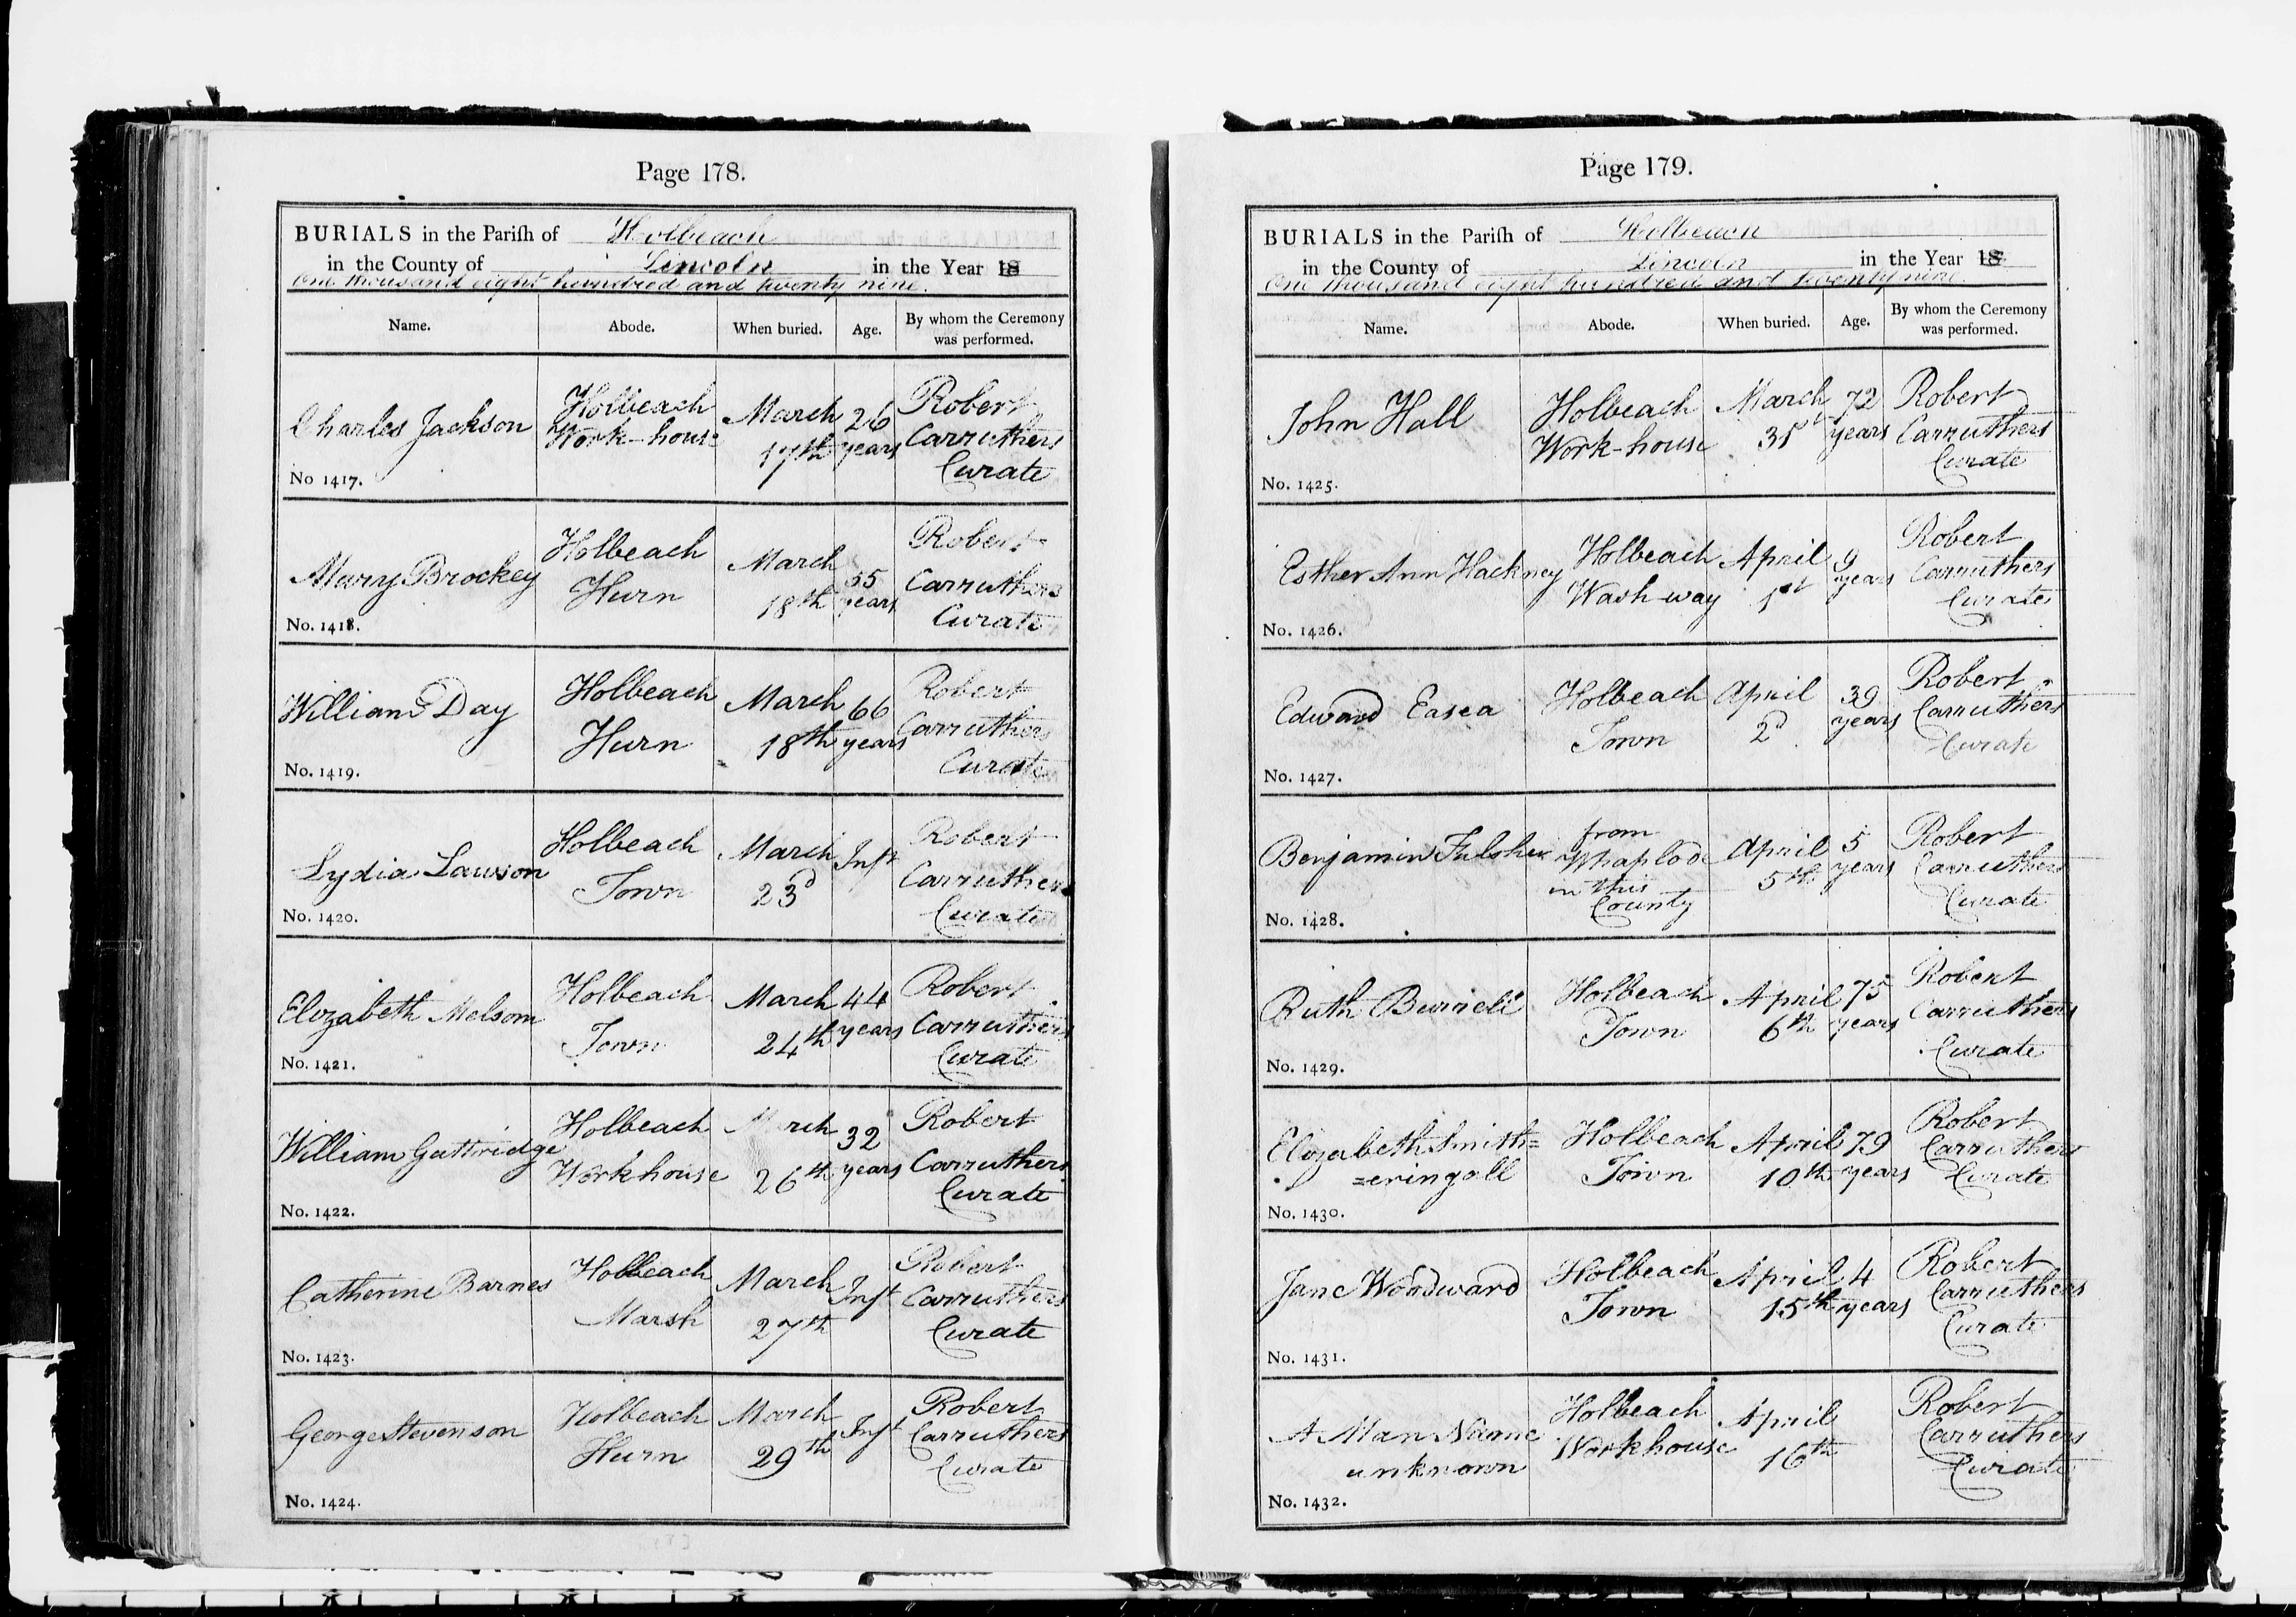 Page 178.
BURIALS in the Parish of Holbeach
in the County of Lincoln in the Year 18
One thousand eight hundred and twenty nine.
Name. Abode. When buried. Age. By whom the Ceremony was performed.
Charles Jackson
No 1417.
Holbeach
Work-house
March
17th
26
years
Robert
Carruthers
Curate
Mary Brockey
No. 1418.
Holbeach
Hurn
March
18th
years
Robert
Carruthers
Curate
William Day
No. 1419.
Holbeach
Hurn
March
18th
66
years
Robert
Carruthers
Curate
Lydia Lawson
No. 1420.
Holbeach
Town
March
23d
Inft
Robert
Carruthers
Curate
Elizabeth Melsom
No. 1421.
Holbeach
Town
March
24th
44
years
Robert
Carruthers
Curate
William Guttridge
No. 1422.
Holbeach
Workhouse
March
26th
32
years
Robert
Carruthers
Curate
Catherine Barnes
No. 1423.
Holbeach
Marsh
March
27th
Inft
Robert
Carruthers
Curate
George Stevenson
No. 1424.
Holbeach
Hurn
March
29th
Inft
Robert
Carruthers
Curate
Page 179.
BURIALS in the Parish of Holbeach
in the County of Lincoln in the Year 18
One thousand eight hundred and twenty nine.
Name. Abode. When buried. Age. By whom the Ceremony was performed.
John Hall
No. 1425.
Holbeach
Work-house
March
72
years
Robert
Carruthers
Curate
Esther Ann Hackney
No. 1426.
Holbeach
Wash way
April
1st
9
years
Robert
Carruthers
Curate
Edward Easea
No. 1427.
Holbeach
Town
April
2d
39
years
Robert
Carruthers
Curate
Benjamin Fulsher
No. 1428.
from
Whaplode
in this
County
April
5th
5
years
Robert
Carruthers
Curate
Ruth Burrell
No. 1429.
Holbeach
Town
April
6th
75
years
Robert
Carruthers
Curate
Elizabeth Smith=
=eringall
No. 1430.
Holbeach
Town
April
10th
79
years
Robert
Carruthers
Curate
Jane Woodward
No. 1431.
Holbeach
Town
April
15th
4
years
Robert
Carruthers
Curate
A Man Name
unknown
No. 1432.
Holbeach
Workhouse
April
16th
Robert
Carruthers
Curate